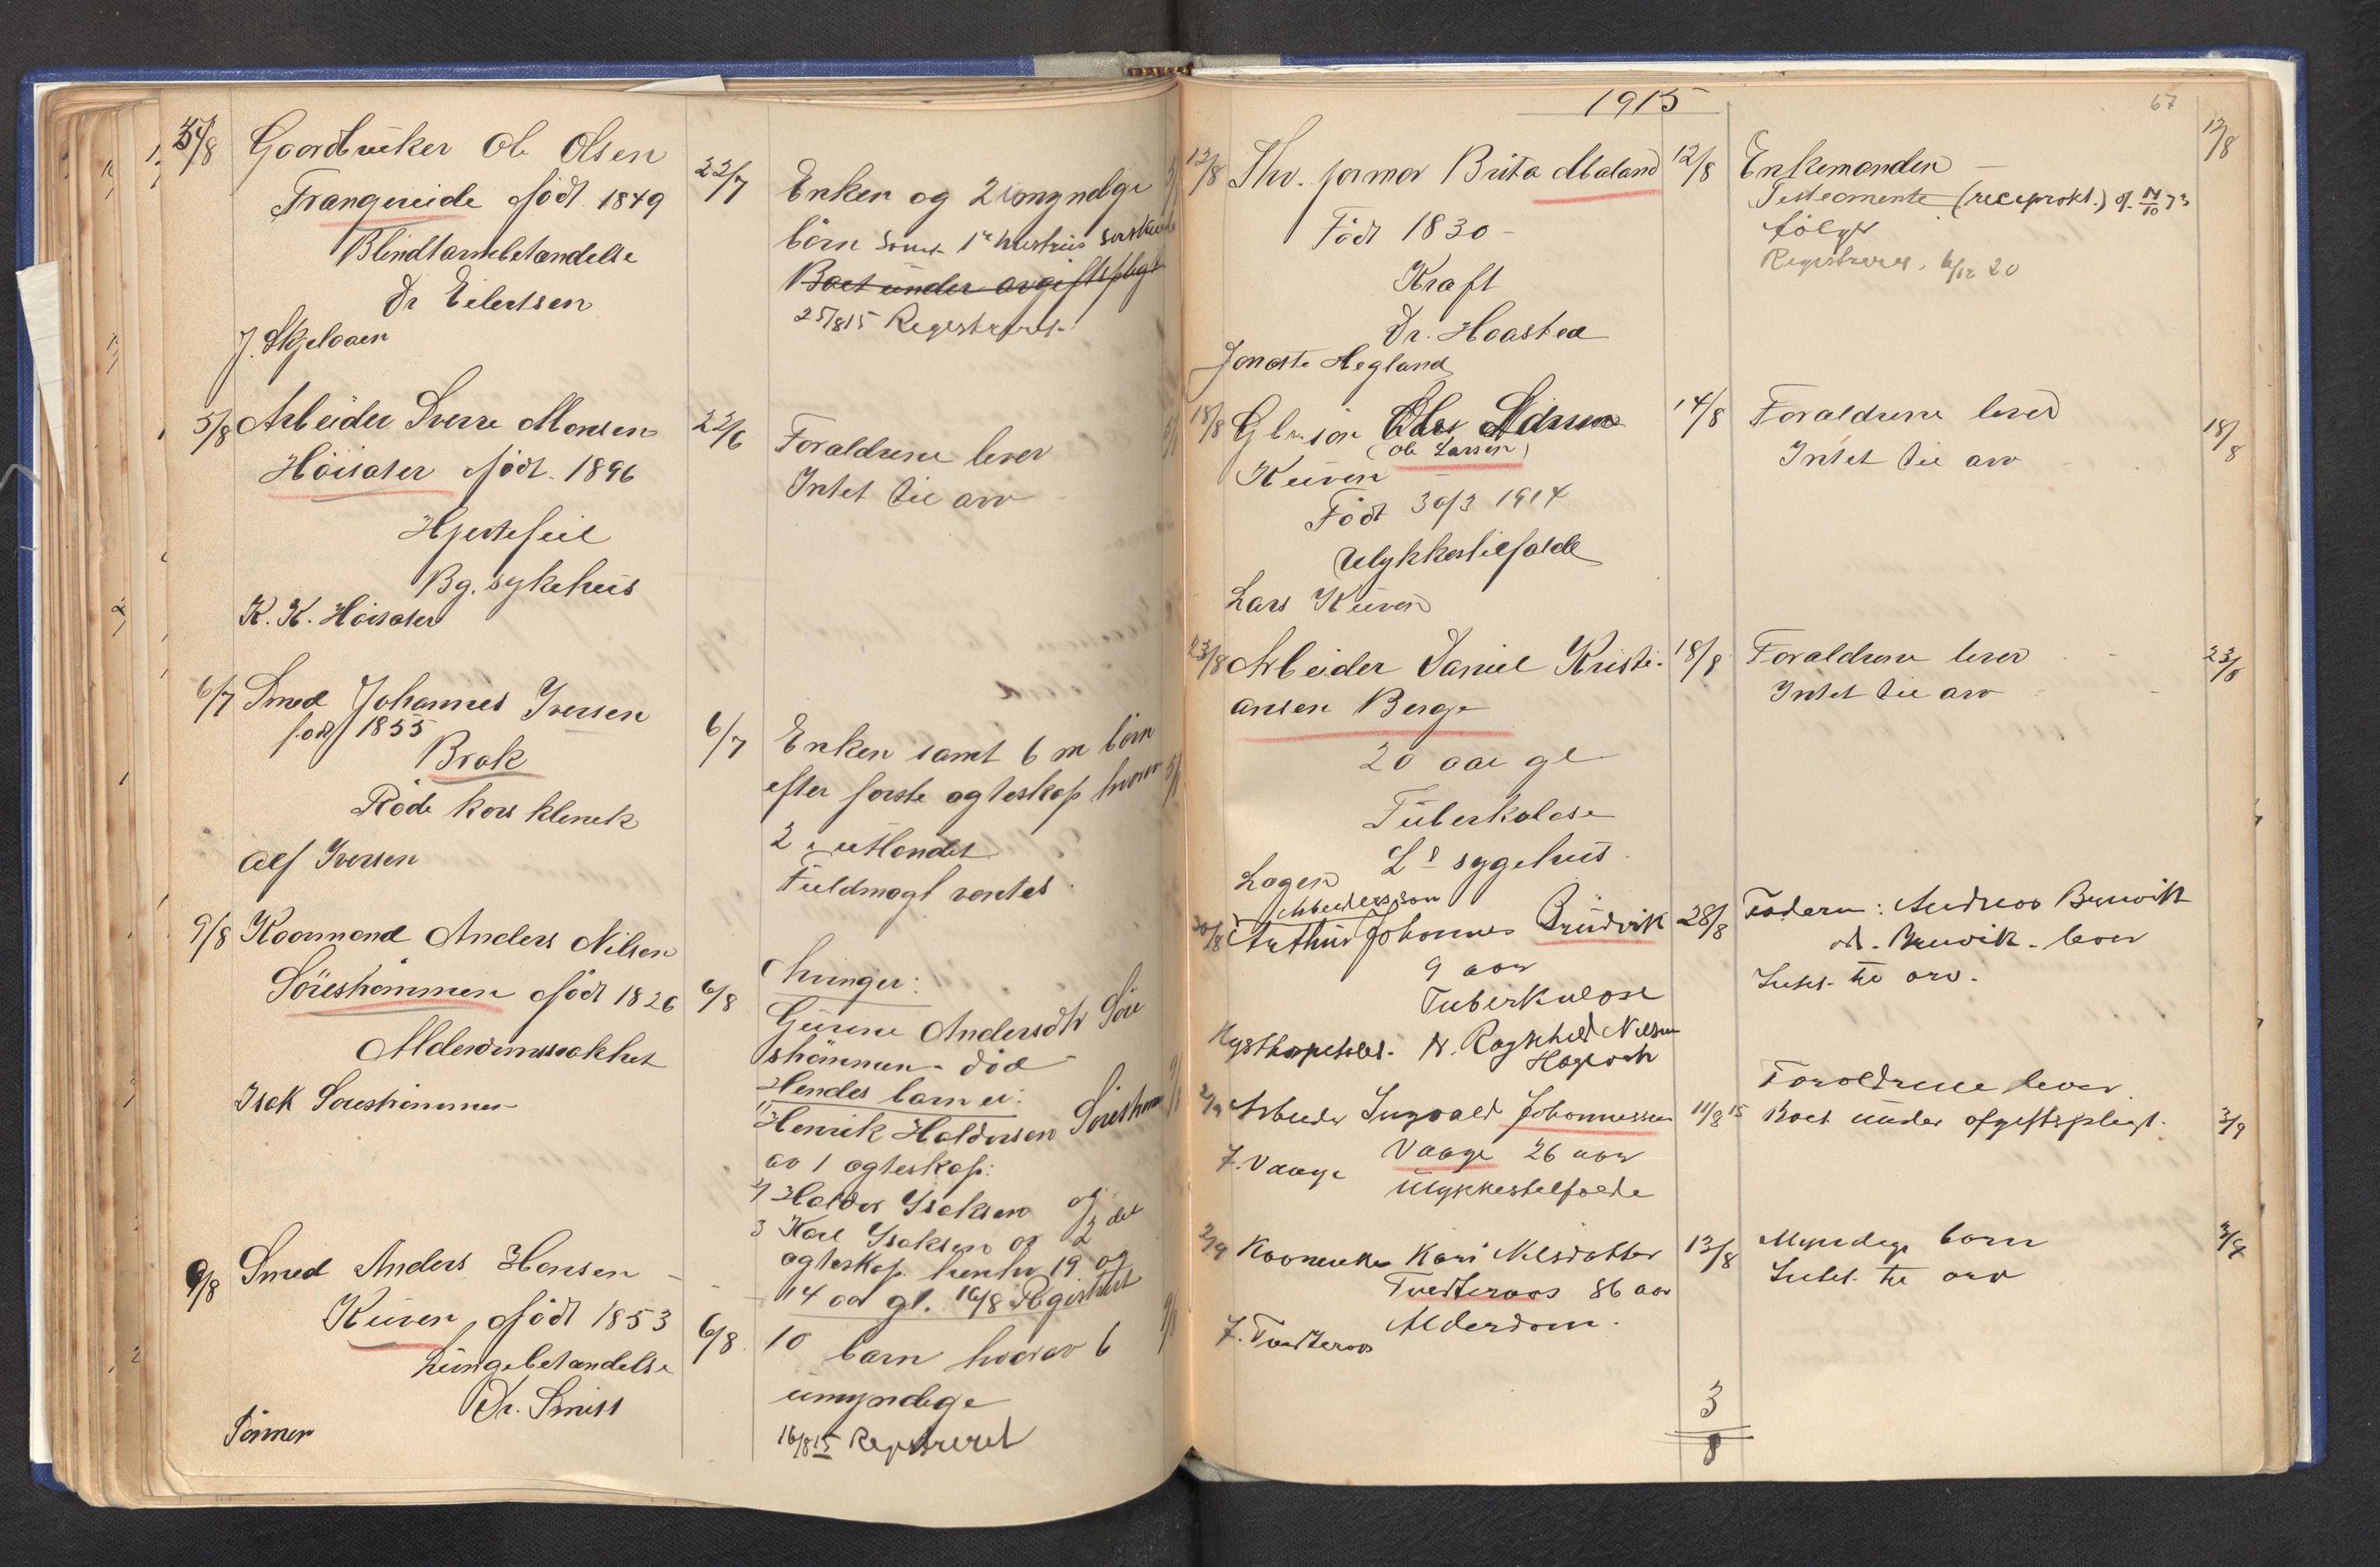 5/8 Gaardbruker Ole Olsen
Trangereide født 1849 22/7
Blindtarmbetændelse
Dr Eilertsen
J. Skjelaaen
Enken og 2 umyndige
børn samt 1ste hustrus
Boet under avgiftspligt
25/8 15 Registreret
5/8 Arbeider Sverre Monsen 22/6
Høisæter født 1896
Hjertefeil
Bg. sykehus
K. K. Høisæter
Forældrene lever
Intet til arv
6/7 Smed Johannes Iversen
født 1855
Brak 6/7
Røde kors klinik
Alf Iversen
Enken samt 6 m børn
efter første ægteskap hvorav
2 i utlandet
Fuldmagt ventes
9/8 Kaarmand Anders Nilsen
Søreshammen født 1826 6/8
Alderdomssvakhet
Isak Søreshammen
Arvinger:
Gurine Andersdtr Søre
shammen - død
Hendes barn er:
1/ Henrik Haldorsen Søresham
av 1 ægteskap:
2/ Haldor Isaksen og
3 Karl Isaksen av 2 det
ægteskap henhv 19 og
14 aar gl. 16/8 Registrert
9/8 Smed Anders Hansen
Kuven, født 1853 6/8
Lungebetændelse
Dr. Smitt
Sønner
10 barn hvorav 6
umyndige
16/8 15 Registreret
1915
67
12/8 Thv. farmor Brita Maland 12/8 Enkemanden 12/8
Født 1830 -
Kraft
Dr. Haastea
Jonatte Hegland
Testamente (reciprokt.) af 14/10 73
følger
Registreres, 6/12 20
18/8 Gbr. søn 14/8 Forældrene lever 18/8
(Ole Larsen) Intet til arv
Kuven
Født 30/3 1914
Ulykkestilfælde
Lars Kuven
23/8 Arbeider Daniel Kristi- 18/8 Forældrene lever 23/8
ansen Berge Intet til arv
20 aar gl
Tuberkulose
Ls sygehus
Logen
Arbeidersson
30/8 Arthur Johannes Bruvik 28/8 Faderen: Andreas Bruvik
9 aar
Tuberkulose
Kysthospitalet. v. Ragnhild Nilsen
Hagevik
ad. Bruvik - lever
Intet til arv.
2/9 Arbeider Ingvald Johannessen 11/8 15 Forældrene lever
Vaage 26 aar Boet under afgiftspligt. 3/9
J. Vaage Ulykkestilfælde
2/9 Kaarenke Kari Nilsdatter 13/8 Myndige børn 3/9
Tvedteraas 86 aar Intet til arv
Alderdom.
J. Tvedteraas
3
8